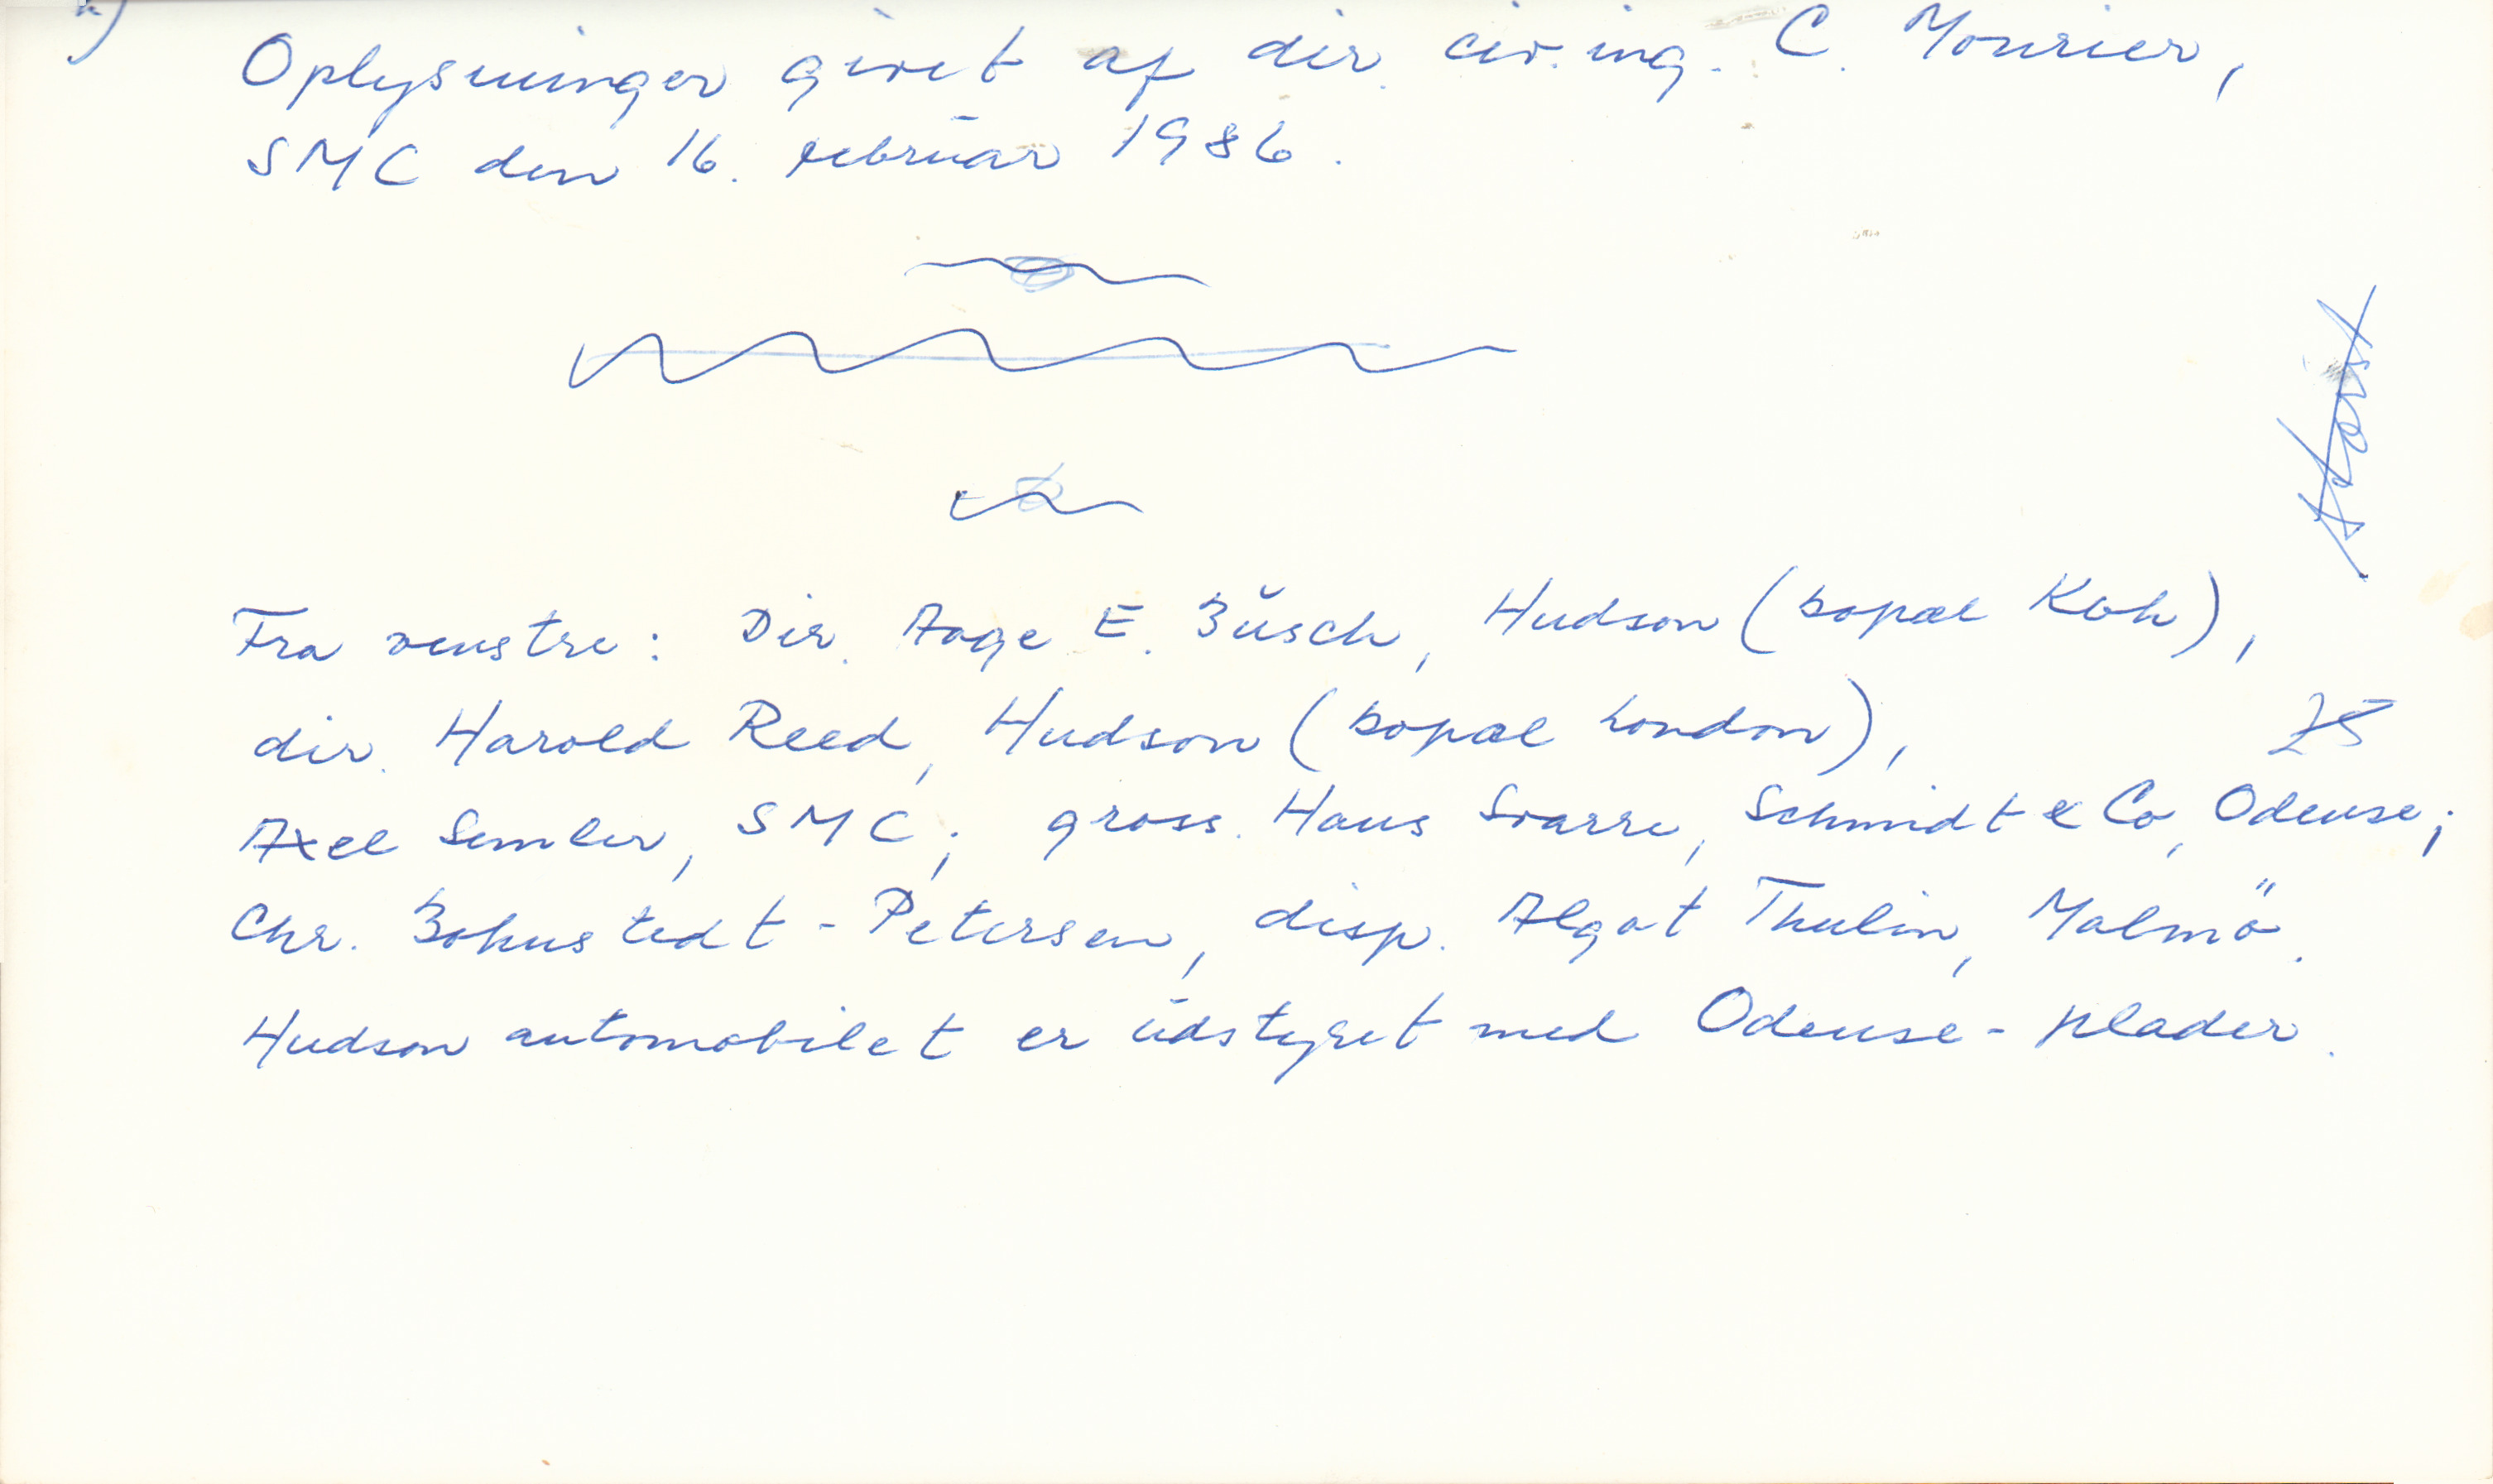 Oplysninger givet af dir. civ. ing. C. Mourier,
SMC den 16. februar 1986.
Fra venstre: Dir. Aage E. Busch, Hudson (bopæl Kbh),
dir. Harold Reed, Hudson (bopæl London),
25
Axel Semler, SMC; gross. Hans Svarre, Schmidt & Co, Odense;
Chr. Bohnstedt-Petersen, disp. Algot Thulin, Malmö.
Hudson automobilet er udstyret med Odense-plader.